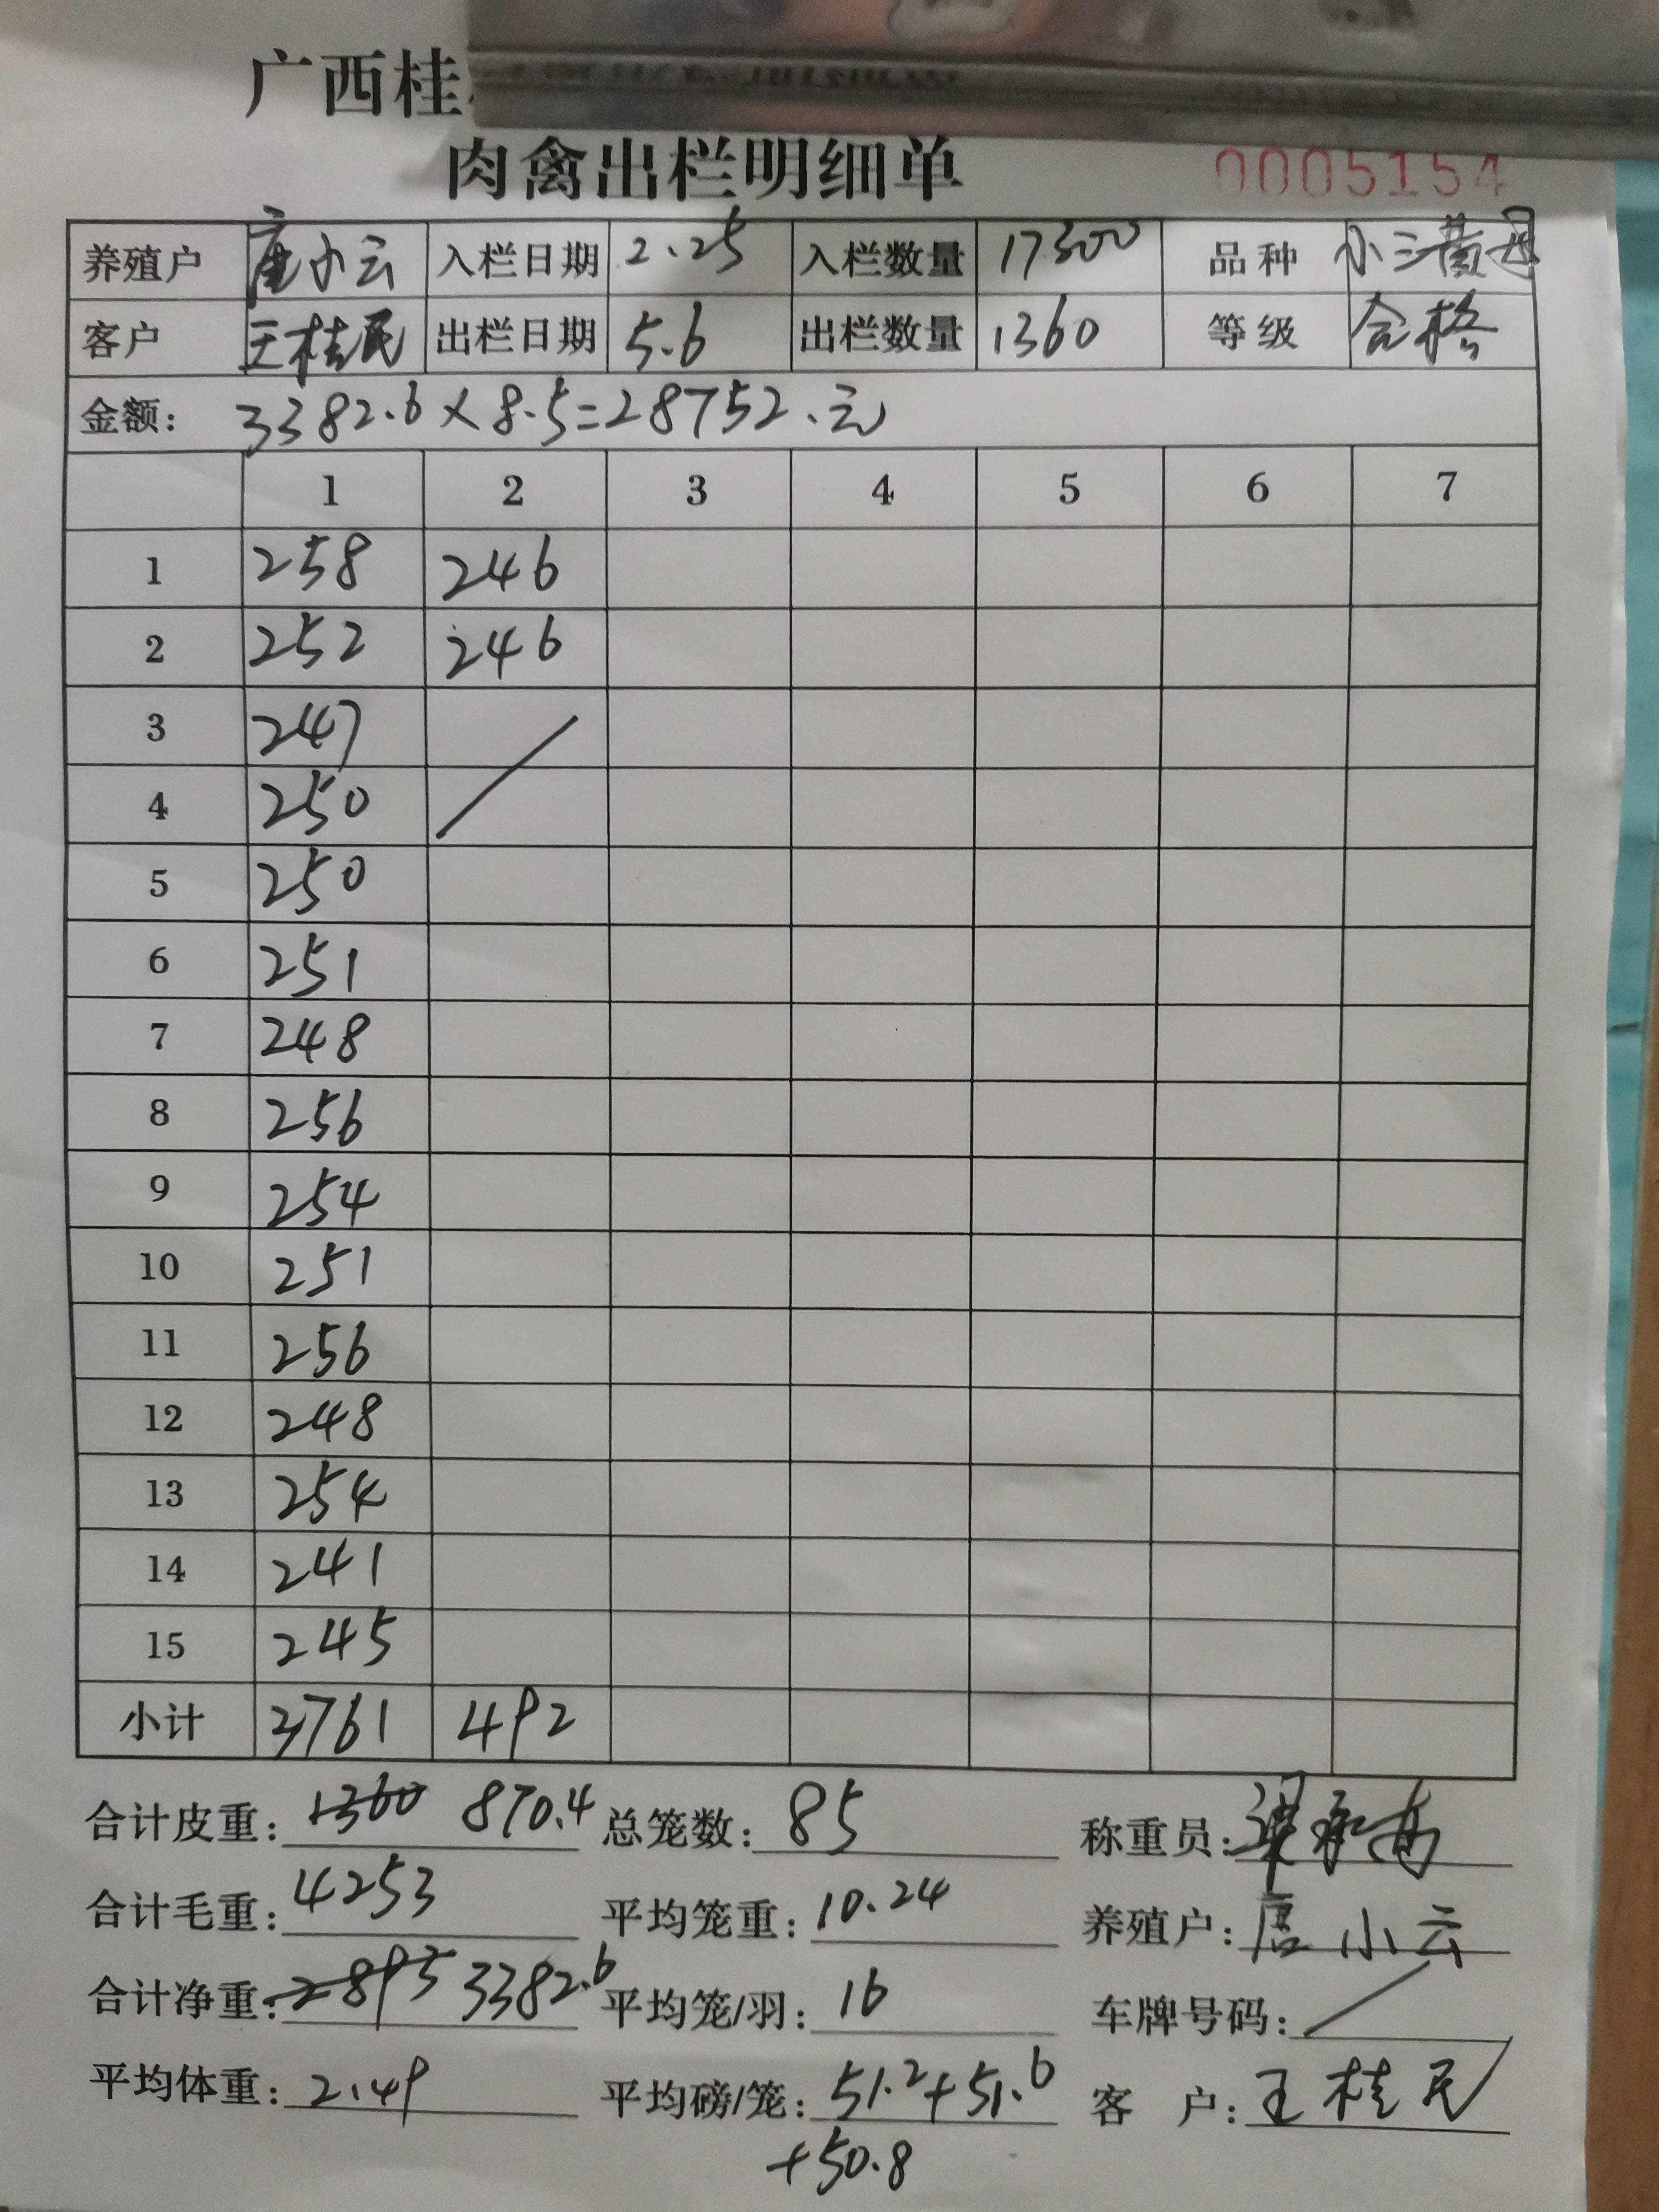 广西桂
肉禽出栏明细单 0005154
养殖户 唐小云 入栏日期 2.25 入栏数量 17300 品种 小三黄
客户 王桂民 出栏日期 5.6 出栏数量 1360 等级 合格
金额: 3382.6×8.5=28752.元
1 2 3 4 5 6 7
1 258 246
2 252 246
3 247
4 250
5 250
6 251
7 248
8 256
9 254
10 251
11 256
12 248
13 254
14 241
15 245
小计 3761 492
合计皮重: 1360 870.4 总笼数: 85 称重员:
合计毛重: 4253 平均笼重: 10.24 养殖户: 唐小云
合计净重: 2893 3382.6 平均笼/羽: 16 车牌号码: /
平均体重: 2.49 平均磅/笼: 51.2+51.6 客 户: 王桂民
+50.8